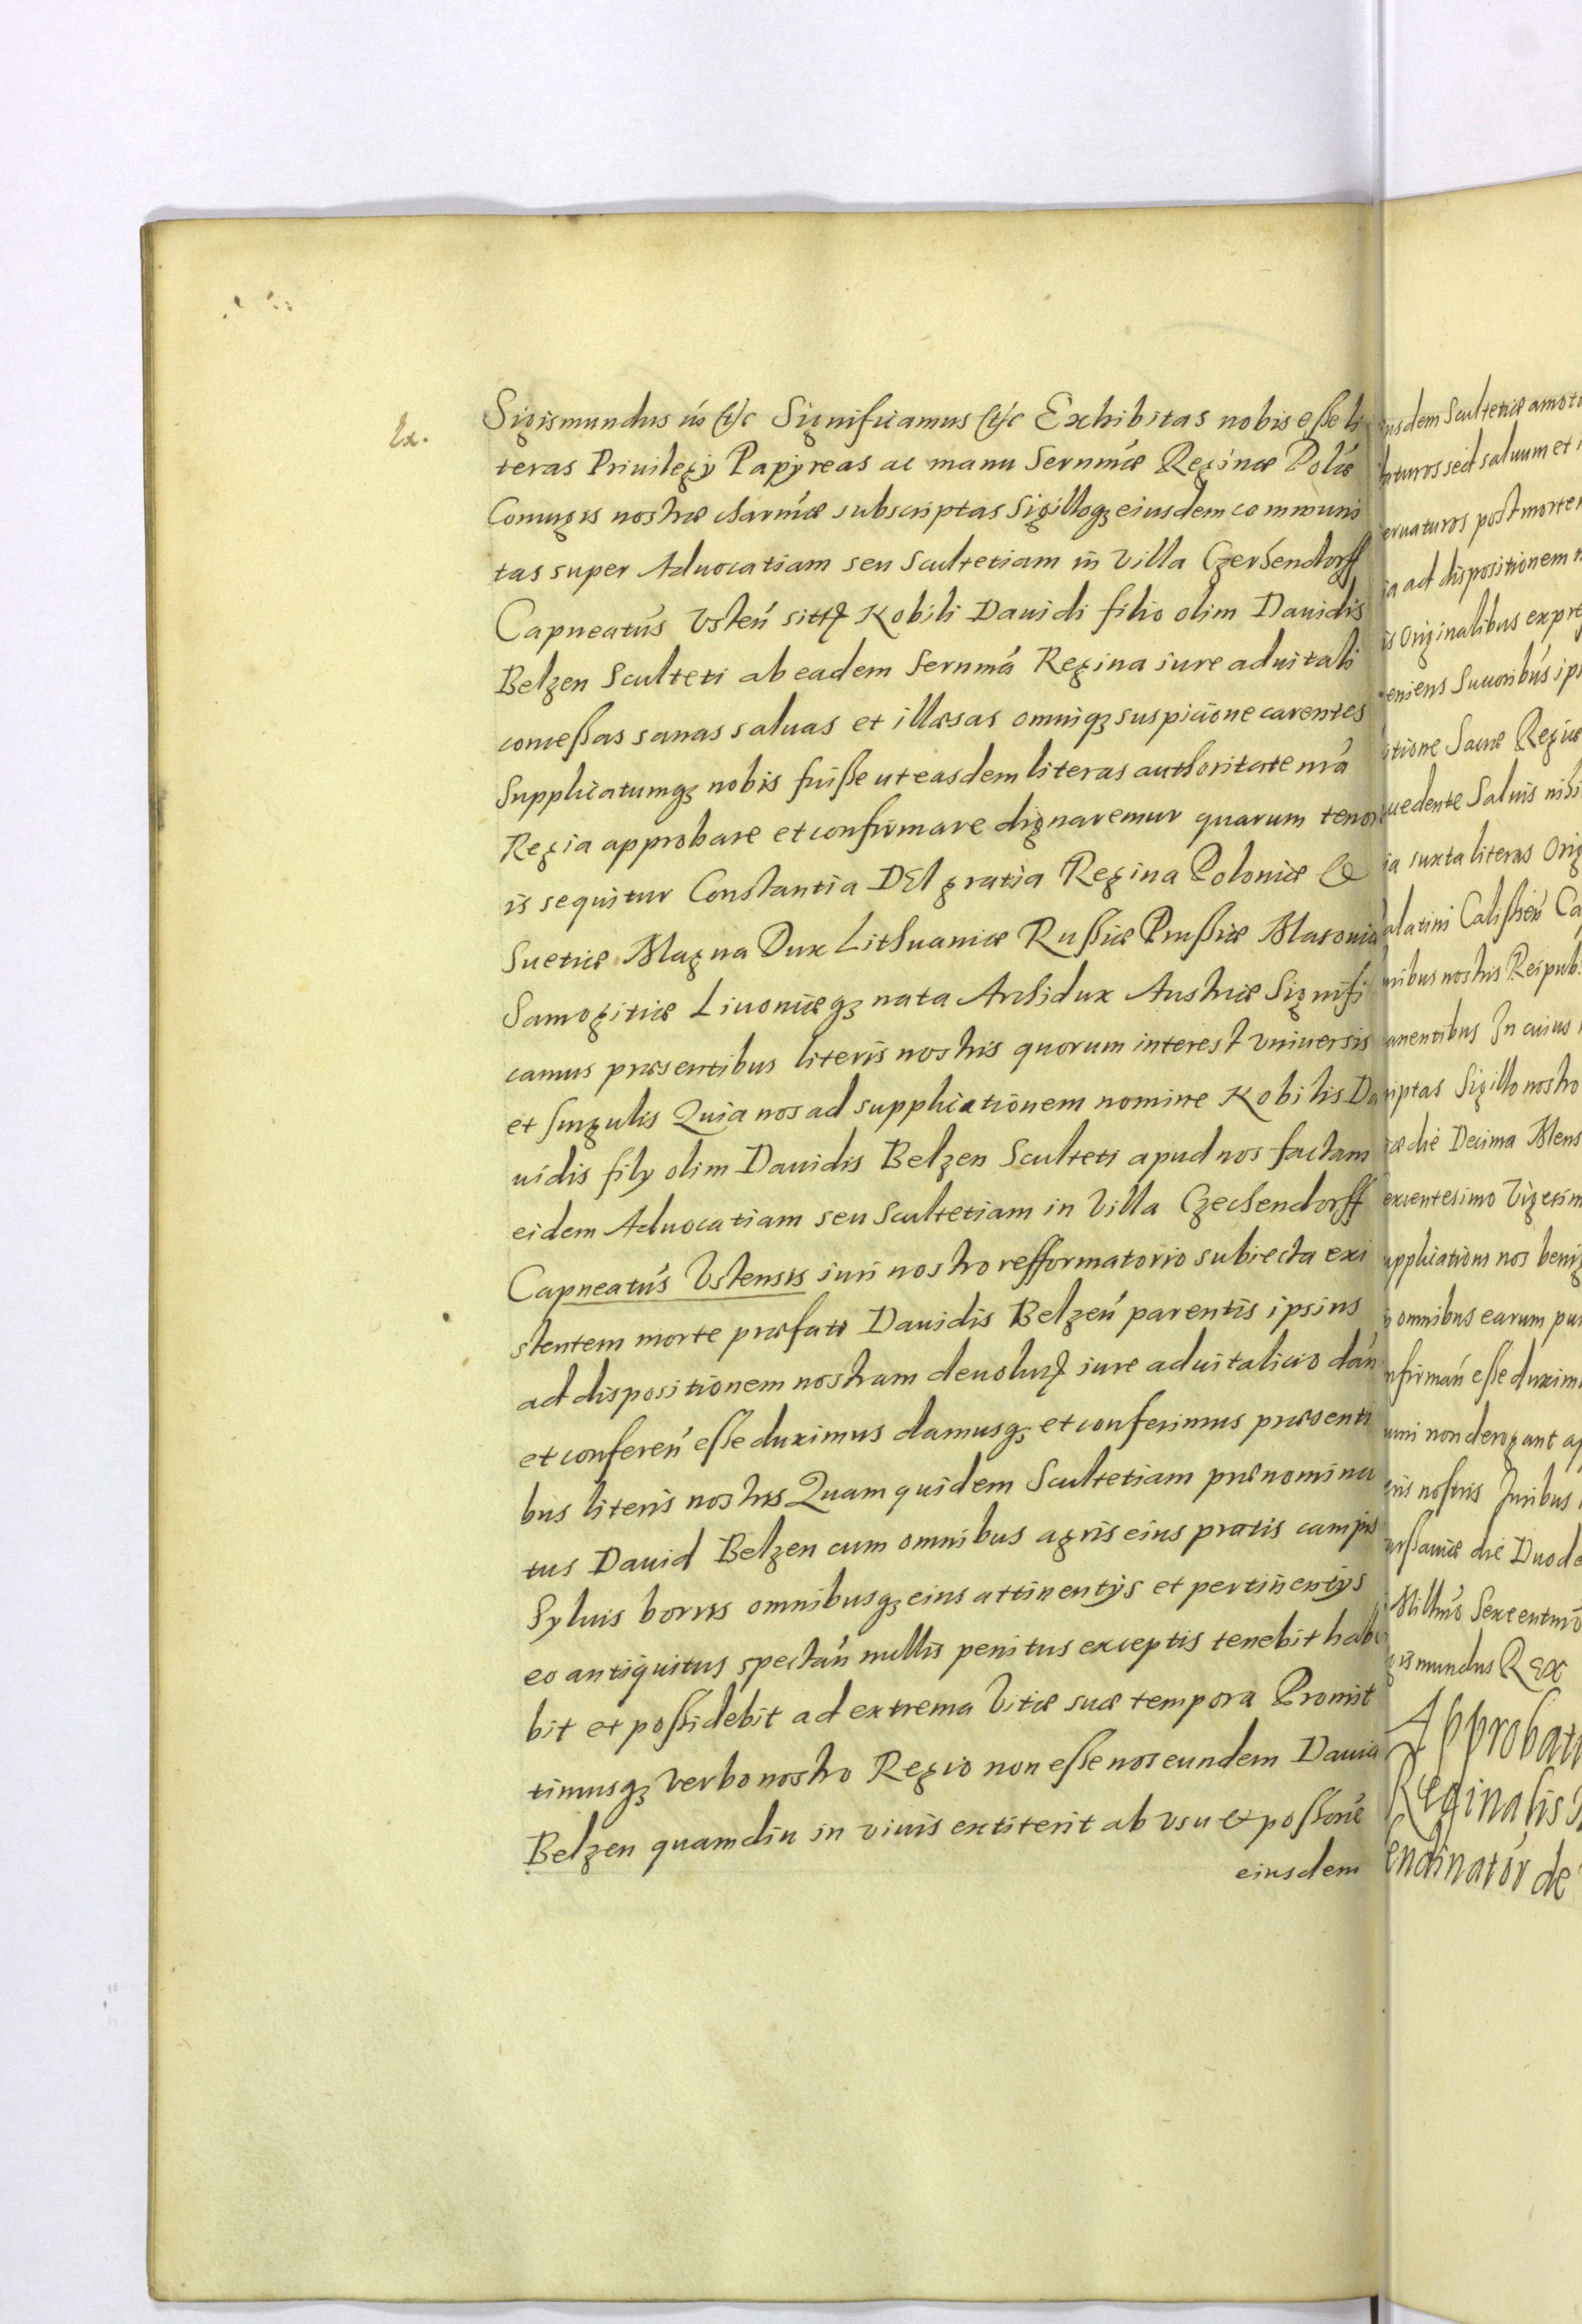 Ex.
Sigismundus iiiº etc Significamus etc Exhibitas nobis esse li
teras Privilegÿ Papÿreas ac manu Sernmæ Reginæ Polæ
Coniugis nostræ charmæ subscriptas Sigilloqȝ eiusdem communi
tas super Aduocatiam seu Scultetiam in Villa Czechendorff
Capneatus Vsten sitꝭ Nobili Dauidi filio olim Dauidis
Belzen Sculteti ab eadem Sernma Regina iure aduitali
concessas sanas saluas et illæsas omniqȝ suspicione carentes
Supplicatumqȝ nobis fuisse ut easdem literas authoritate nra
Regia approbare et confirmare dignaremur quarum tenor
is sequitur Constantia DEI gratia Regina Poloniæ &
Suetiæ Magna Dux Lithuaniæ Russiæ Prussiæ Masouiæ
Samogitiæ Liuoniæqȝ nata Archidux Austriæ Signifi
camus præsentibus literis nostris quorum interest vniuersis
et singulis Quia nos ad supplicationem nomine Nobilis Da
uidis filÿ olim Dauidis Belzen Sculteti apud nos factam
eidem Aduocatiam seu Scultetiam in Villa Czechendorff
Capneatus Vstensis iuri nostro refformatorio subiecta exi
stentem morte præfati Dauidis Belzen parentis ipsius
ad dispositionem nostram deuolutꝭ iure aduitalicio dan
et conferen esse duximus damusqȝ et conferimus præsenti
bus literis nostris Quam quidem Scultetiam prænomina
tus Dauid Belzen cum omnibus agris eius pratis campis
Syluis borris omnibusqȝ eius attinentÿs et pertinentÿs
eo antiquitus spectan nullis penitus exceptis tenebit habe
bit et possidebit ad extrema Vitæ suæ tempora Promit
timusqȝ verbo nostro Regio non esse nos eundem Dauid
Belzen quamdiu in viuis extiterit ab vsu et possone
eiusdem
iusdem Scultetiæ amoto
turos sed saluum et
eruaturos post morte
ia ad dispositionem
is Originalibus expre
eniens Suuoribus ips
tione Sacræ Regiæ
cedente Saluis nihi
ia iuxta literas Orig
alatini Calissien Ca
nibus nostris Reipub
anentibus In cuius
riptas Sigillo nostro
die Decima Mens
excentesimo Vigesim
upplicationi nos benig
omnibus earum pun
nfirman esse duxim
umi non derogant ap
eris nostris Iuribus
arssauiæ die Duode
Millmo Sexcentmo
gismundus REX
Approbati
Reginalis
endinator de